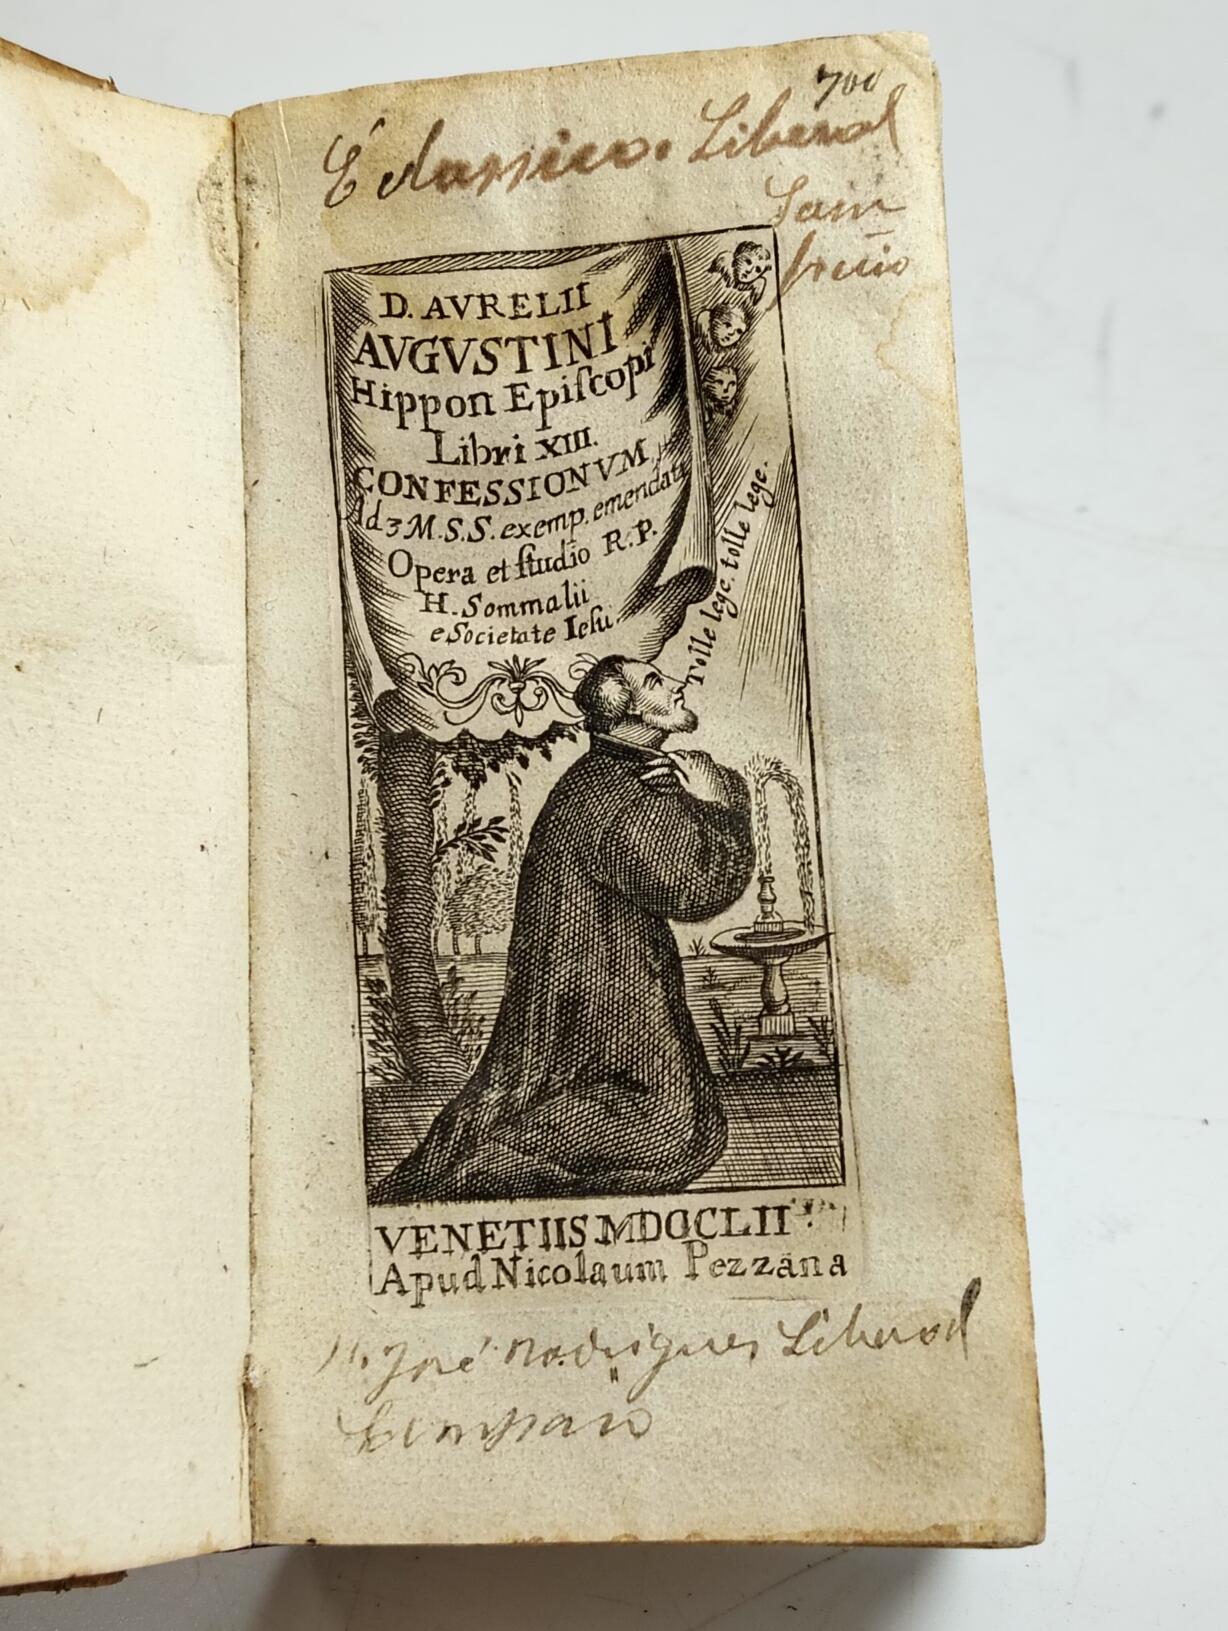 700
É classico. Liberal
Sam
D. AVRELII
AVGVSTINI
Hippon Epiſcopi
Libri XIII.
CONFESSIONVM
Ad 3 M.S.S. exemp. emendati
Opera et ſtudio R.P.
H. Sommalii
e Societate Ieſu
Tolle lege. tolle lege.
VENETIIS MDCCLII
Apud Nicolaum Pezzāna
José Rodrigues Liberal